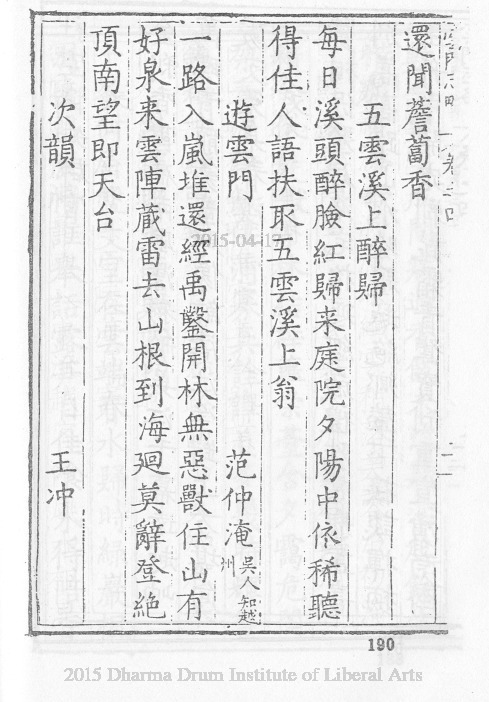 還聞薝蔔香
五雲溪上醉歸
每日溪頭醉臉紅歸来庭院夕陽中依稀聽
得佳人語扶取五雲溪上翁
遊雲門 范仲淹 吳人知越州
一路入嵐堆還經禹鑿開林無惡獸住山有
好泉来雲陣蔵雷去山根到海廻莫辭登絶
頂南望即天台
次韻 王冲
190
2015-04-17
2015 Dharma Drum Institute of Liberal Arts